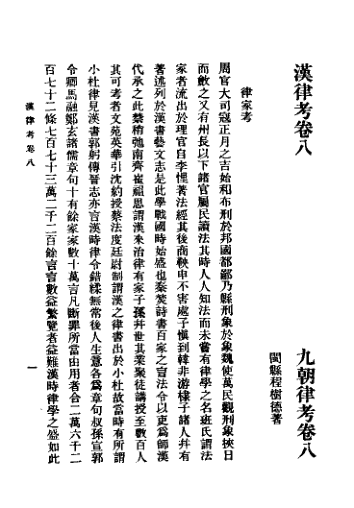 漢律考卷八
九朝律考卷八
閩縣程樹德著
律家考
周官大司寇正月之吉始和布刑於邦國都鄙乃縣刑象於象魏使萬民觀刑象挾日
而斂之又有州長以下諸官屬民讀法其時人人知法而未嘗有律學之名班氏謂法
家者流出於理官自李悝著法經其後商鞅申不害處子慎到韓非游棣子諸人幷有
著述列於漢書藝文志是此學戰國時始盛也秦焚詩書百家之言法令以吏爲師漢
代承之此禁稍弛南齊崔祖思謂漢來治律有家子孫并世其業聚徒講授至數百人
其可考者文苑英華引沈約授蔡法度廷尉制謂漢之律書出於小杜故當時有所謂
小杜律見漢書郭躬傳晉志亦言漢時律令錯糅無常後人生意各爲章句叔孫宣郭
令卿馬融鄭玄諸儒章句十有餘家家數十萬言凡斷罪所當由用者合二萬六千二
百七十二條七百七十三萬二千二百餘言言數益繁覽者益難漢時律學之盛如此
漢律考卷八
一